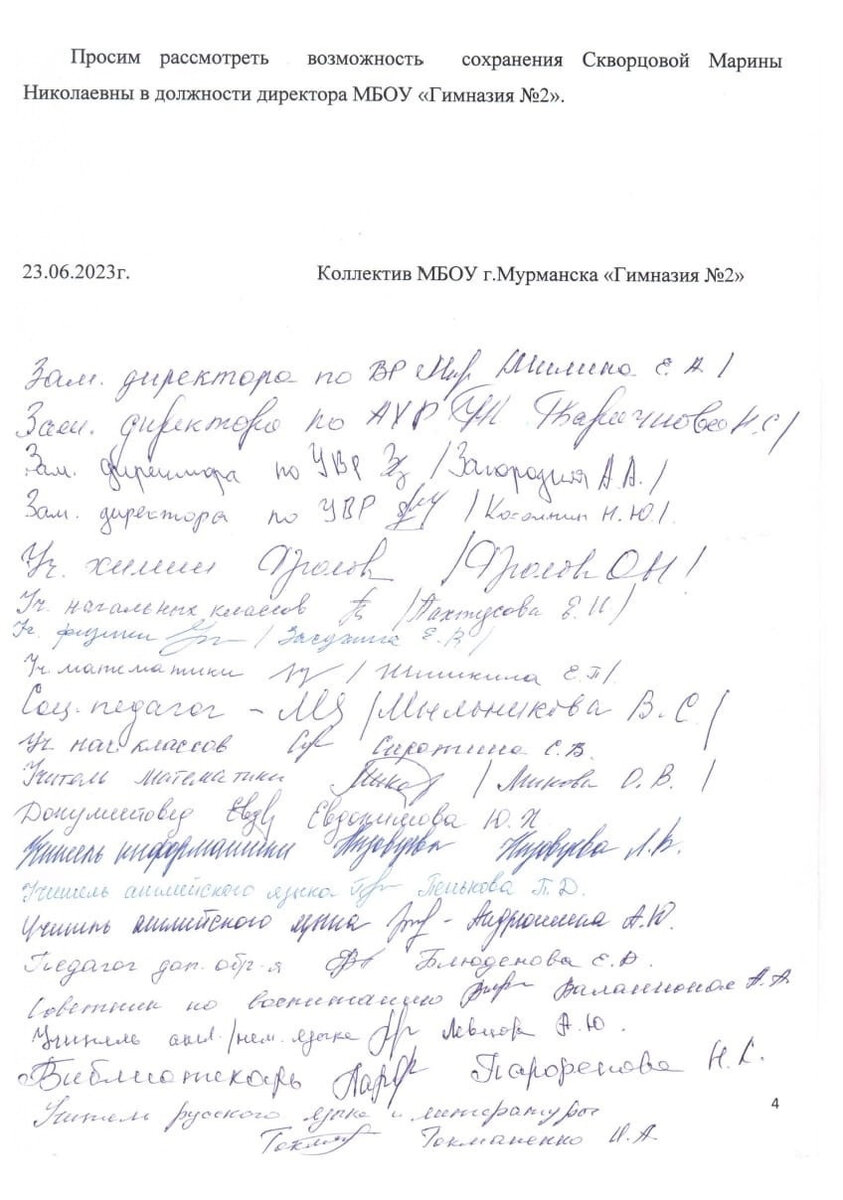 Просим рассмотреть возможность сохранения Скворцовой Марины
Николаевны в должности директора МБОУ «Гимназия №2».
23.06.2023г. Коллектив МБОУ г.Мурманска «Гимназия №2»
Зам. директора по ВР Милина Е. А /
Зам. директора по АХР Н.С/
Зам. директора по УВР / Загородняя А.А. /
Зам. директора по УВР / Н.Ю/.
Уч. химии Фролов /Фролов ОН/
Уч. начальных классов /Пахтусова Е.И/
Уч. физики / Засухина Е.В/
Уч. математики / Шишкина Е.П/.
Соц. педагог – /Мыльникова В.С/
Уч. нач. классов Сиротина С.В.
Учитель математики / Минова О.В. /
Документовед Евд Евдокимова Ю.Н.
Учитель информатики Низовцева Низовцева Л.В.
Учитель английского языка Пенькова П.Д.
Учитель английского языка – А.Ю.
Педагог доп. обр-я Блюденова Е.А.
Советник по воспитанию А.А
Учитель англ./нем. языка Левцова А.Ю.
Библиотекарь Парф Парфенова Н.К.
4
Учитель русского языка и литературы
Токма Токманенко И.А.